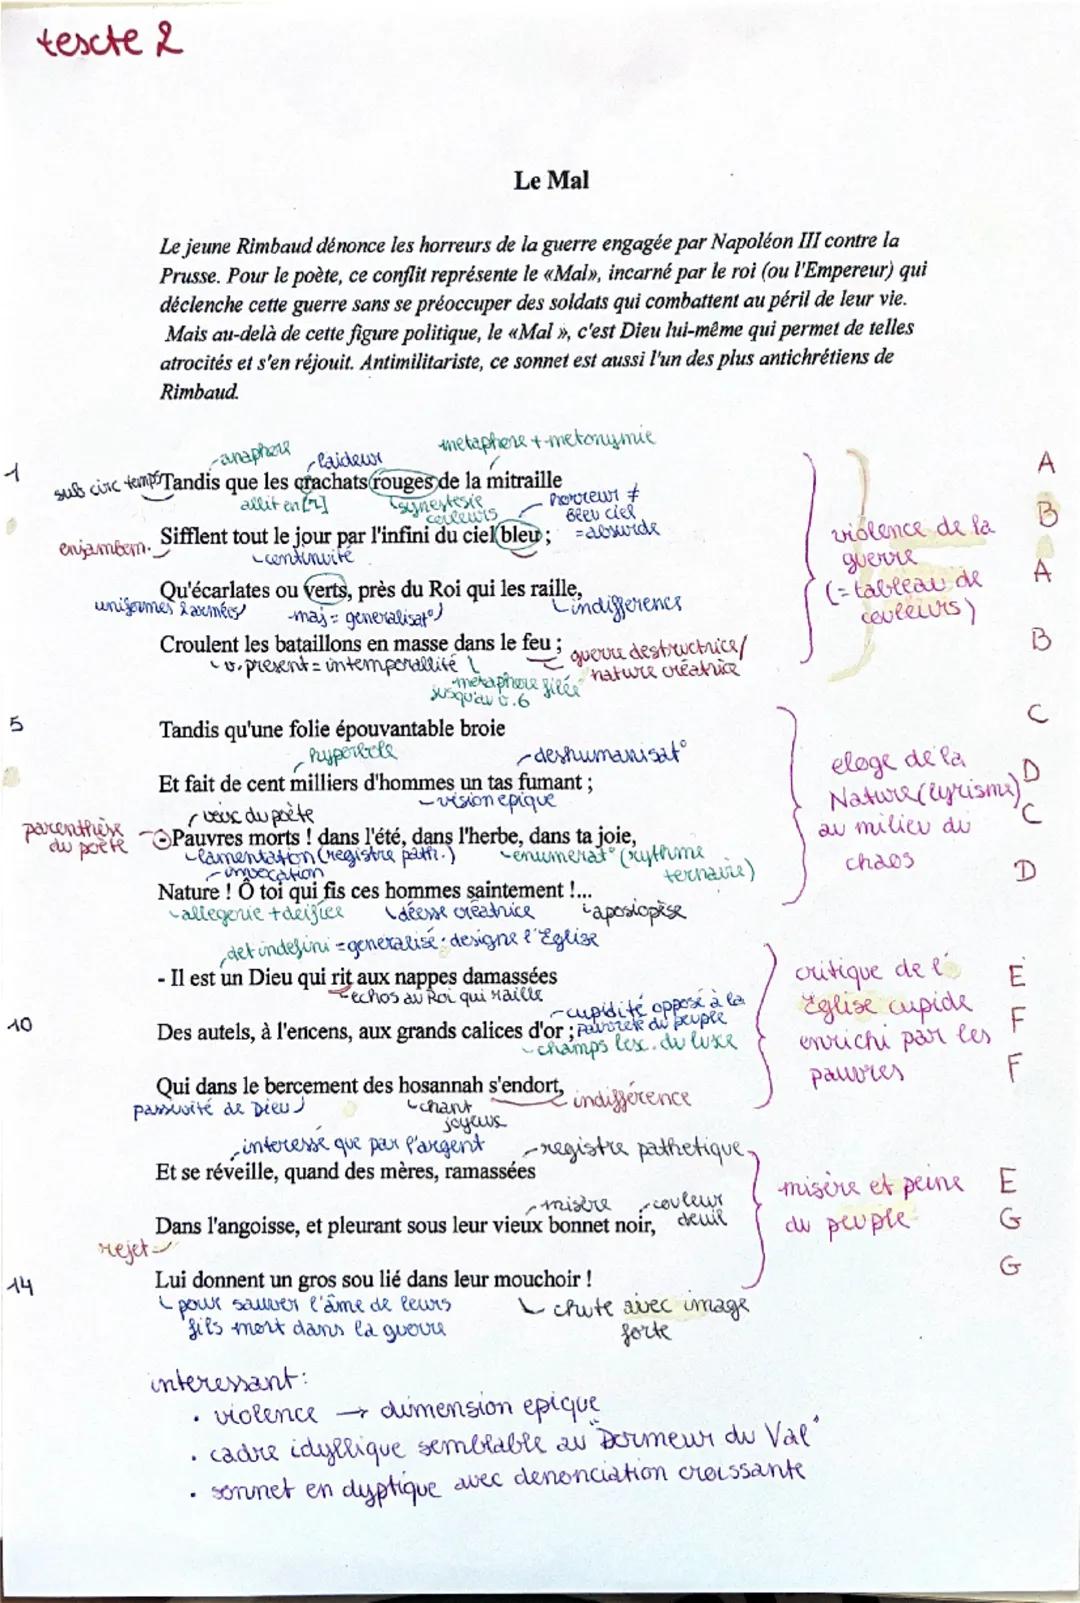 texte 2
Le Mal
Le jeune Rimbaud dénonce les horreurs de la guerre engagée par Napoléon III contre la
Prusse. Pour le poète, ce conflit représente le «Mal», incarné par le roi (ou l'Empereur) qui
déclenche cette guerre sans se préoccuper des soldats qui combattent au péril de leur vie.
Mais au-delà de cette figure politique, le «Mal », c'est Dieu lui-même qui permet de telles
atrocités et s'en réjouit. Antimilitariste, ce sonnet est aussi l'un des plus antichrétiens de
Rimbaud.
anaphore laideur metaphore + metonymie
1 sub circ temps Tandis que les crachats rouges de la mitraille A
allit en [r] synestesie couleurs horreur ≠ beau ciel = absurde
enjambem. Sifflent tout le jour par l'infini du ciel bleu ; B
continuité
violence de la
guerre
(= tableau de
couleurs)
Qu'écarlates ou verts, près du Roi qui les raille, A
uniformes 2 armées maj = generalisat° indifference
Croulent les bataillons en masse dans le feu ; B
v. present = intemporalité guerre destructrice/
nature créatrice
metaphore filée
jusqu'au v.6
5 Tandis qu'une folie épouvantable broie C
hyperbole deshumanisat°
Et fait de cent milliers d'hommes un tas fumant ; D
vision epique
eloge de la
Nature (lyrisme)
au milieu du
chaos
voeux du poète
parenthèse
du poète
- Pauvres morts ! dans l'été, dans l'herbe, dans ta joie, C
lamentation (registre path.) enumerat° (rythme
ternaire)
invocation
Nature ! Ô toi qui fis ces hommes saintement !... D
allegorie + deifiée déesse créatrice aposiopèse
det indefini = generalise : designe l'Eglise
- Il est un Dieu qui rit aux nappes damassées E
echos au Roi qui raille
cupidité opposé à la
pauvreté du peuple
10 Des autels, à l'encens, aux grands calices d'or ; F
champs lex. du luxe
critique de l'
Eglise cupide
enrichi par les
pauvres
Qui dans le bercement des hosannah s'endort, F
passivité de Dieu chant
joyeux indifférence
interessé que par l'argent registre pathetique
Et se réveille, quand des mères, ramassées E
misère couleur
deuil
Dans l'angoisse, et pleurant sous leur vieux bonnet noir, G
rejet
misère et peine
du peuple
14 Lui donnent un gros sou lié dans leur mouchoir ! G
pour sauver l'âme de leurs
fils mort dans la guerre
chute avec image
forte
interessant:
• violence → dimension epique
• cadre idyllique semblable au "Dormeur du Val"
• sonnet en dyptique avec denonciation croissante